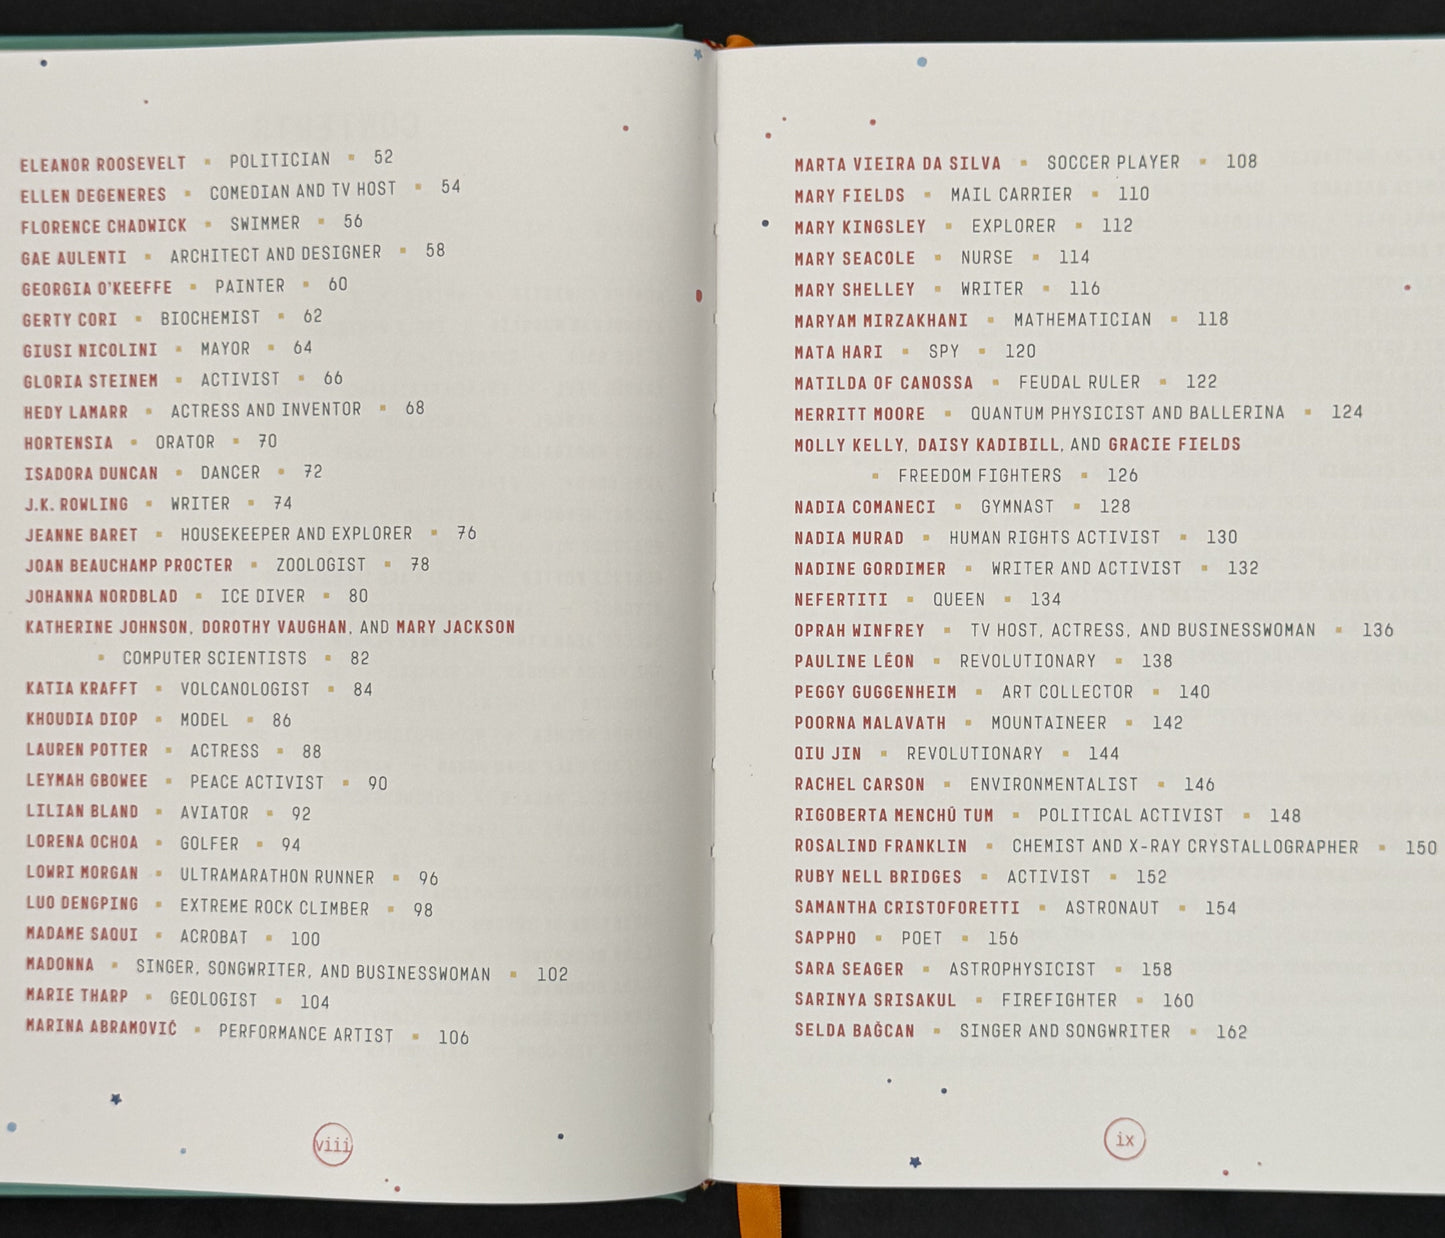 ELEANOR ROOSEVELT ▪ POLITICIAN ▪ 52
ELLEN DEGENERES ▪ COMEDIAN AND TV HOST ▪ 54
FLORENCE CHADWICK ▪ SWIMMER ▪ 56
GAE AULENTI ▪ ARCHITECT AND DESIGNER ▪ 58
GEORGIA O'KEEFFE ▪ PAINTER ▪ 60
GERTY CORI ▪ BIOCHEMIST ▪ 62
GIUSI NICOLINI ▪ MAYOR ▪ 64
GLORIA STEINEM ▪ ACTIVIST ▪ 66
HEDY LAMARR ▪ ACTRESS AND INVENTOR ▪ 68
HORTENSIA ▪ ORATOR ▪ 70
ISADORA DUNCAN ▪ DANCER ▪ 72
J.K. ROWLING ▪ WRITER ▪ 74
JEANNE BARET ▪ HOUSEKEEPER AND EXPLORER ▪ 76
JOAN BEAUCHAMP PROCTER ▪ ZOOLOGIST ▪ 78
JOHANNA NORDBLAD ▪ ICE DIVER ▪ 80
KATHERINE JOHNSON, DOROTHY VAUGHAN, AND MARY JACKSON
▪ COMPUTER SCIENTISTS ▪ 82
KATIA KRAFFT ▪ VOLCANOLOGIST ▪ 84
KHOUDIA DIOP ▪ MODEL ▪ 86
LAUREN POTTER ▪ ACTRESS ▪ 88
LEYMAH GBOWEE ▪ PEACE ACTIVIST ▪ 90
LILIAN BLAND ▪ AVIATOR ▪ 92
LORENA OCHOA ▪ GOLFER ▪ 94
LOWRI MORGAN ▪ ULTRAMARATHON RUNNER ▪ 96
LUO DENGPING ▪ EXTREME ROCK CLIMBER ▪ 98
MADAME SAQUI ▪ ACROBAT ▪ 100
MADONNA ▪ SINGER, SONGWRITER, AND BUSINESSWOMAN ▪ 102
MARIE THARP ▪ GEOLOGIST ▪ 104
MARINA ABRAMOVIĆ ▪ PERFORMANCE ARTIST ▪ 106
viii
MARTA VIEIRA DA SILVA ▪ SOCCER PLAYER ▪ 108
MARY FIELDS ▪ MAIL CARRIER ▪ 110
MARY KINGSLEY ▪ EXPLORER ▪ 112
MARY SEACOLE ▪ NURSE ▪ 114
MARY SHELLEY ▪ WRITER ▪ 116
MARYAM MIRZAKHANI ▪ MATHEMATICIAN ▪ 118
MATA HARI ▪ SPY ▪ 120
MATILDA OF CANOSSA ▪ FEUDAL RULER ▪ 122
MERRITT MOORE ▪ QUANTUM PHYSICIST AND BALLERINA ▪ 124
MOLLY KELLY, DAISY KADIBILL, AND GRACIE FIELDS
▪ FREEDOM FIGHTERS ▪ 126
NADIA COMANECI ▪ GYMNAST ▪ 128
NADIA MURAD ▪ HUMAN RIGHTS ACTIVIST ▪ 130
NADINE GORDIMER ▪ WRITER AND ACTIVIST ▪ 132
NEFERTITI ▪ QUEEN ▪ 134
OPRAH WINFREY ▪ TV HOST, ACTRESS, AND BUSINESSWOMAN ▪ 136
PAULINE LÉON ▪ REVOLUTIONARY ▪ 138
PEGGY GUGGENHEIM ▪ ART COLLECTOR ▪ 140
POORNA MALAVATH ▪ MOUNTAINEER ▪ 142
QIU JIN ▪ REVOLUTIONARY ▪ 144
RACHEL CARSON ▪ ENVIRONMENTALIST ▪ 146
RIGOBERTA MENCHÚ TUM ▪ POLITICAL ACTIVIST ▪ 148
ROSALIND FRANKLIN ▪ CHEMIST AND X-RAY CRYSTALLOGRAPHER ▪ 150
RUBY NELL BRIDGES ▪ ACTIVIST ▪ 152
SAMANTHA CRISTOFORETTI ▪ ASTRONAUT ▪ 154
SAPPHO ▪ POET ▪ 156
SARA SEAGER ▪ ASTROPHYSICIST ▪ 158
SARINYA SRISAKUL ▪ FIREFIGHTER ▪ 160
SELDA BAĞCAN ▪ SINGER AND SONGWRITER ▪ 162
ix